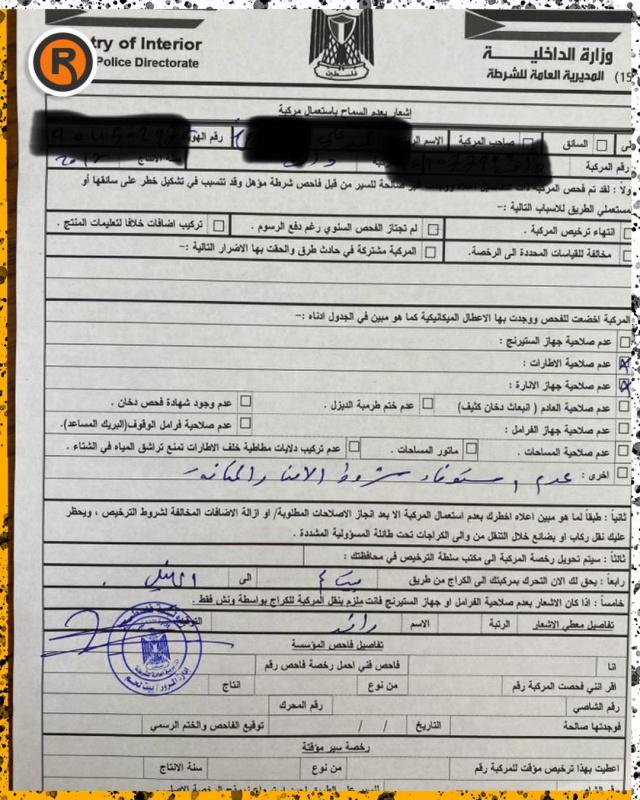 R
try of Interior
Police Directorate
وزارة الداخلية
المديرية العامة للشرطة
(15
فلسطين
اشعار بعدم السماح باستعمال مركبة
السائق صاحب المركبة رقم الهو
رقم المركبة سنة الانتاج
ولاً : لقد تم فحص المركبة صالحة للسير من قبل فاحص شرطة مؤهل وقد تتسبب في تشكيل خطر على سائقها أو
مستعملي الطريق للاسباب التالية :–
انتهاء ترخيص المركبة . لم تجتاز الفحص السنوي رغم دفع الرسوم . تركيب اضافات خلافا لتعليمات المنتج .
مخالفة للقياسات المحددة الى الرخصة. المركبة مشتركة في حادث طرق والحقت بها الاضرار التالية :–
المركبة اخضعت للفحص ووجدت بها الاعطال الميكانيكية كما هو مبين في الجدول ادناه :–
عدم صلاحية جهاز الستيرنج :
عدم صلاحية الاطارات :
عدم صلاحية جهاز الانارة :
عدم صلاحية العادم ( انبعاث دخان كثيف) عدم ختم طرمبة الديزل . عدم وجود شهادة فحص دخان .
عدم صلاحية جهاز الفرامل : عدم صلاحية فرامل الوقوف(البريك المساعد).
عدم صلاحية المساحات . ماتور المساحات . عدم تركيب دلايات مطاطية خلف الاطارات تمنع تراشق المياه في الشتاء .
اخرى : عدم استيفاء شروط الامن والمتانة
ثانياً : طبقاً لما هو مبين اعلاه اخطرك بعدم استعمال المركبة الا بعد انجاز الاصلاحات المطلوبة/ او ازالة الاضافات المخالفة لشروط الترخيص ، ويحظر
عليك نقل ركاب او بضائع خلال التنقل من والى الكراجات تحت طائلة المسؤولية المشددة .
ثالثاً : سيتم تحويل رخصة المركبة الى مكتب سلطة الترخيص في محافظتك :
رابعاً : يحق لك الان التحرك بمركبتك الى الكراج من طريق الى
خامساً : اذا كان الاشعار بعدم صلاحية الفرامل او جهاز الستيرنج فانت ملزم بنقل المركبة للكراج بواسطة ونش فقط .
تفاصيل معطي الاشعار الرتبة الاسم رائد
تفاصيل فاحص المؤسسة
انا فاحص فني احمل رخصة فاحص رقم
اقر انني فحصت المركبة رقم من نوع انتاج
رقم الشاصي رقم المحرك
فوجدتها صالحة التاريخ / / توقيع الفاحص والختم الرسمي
رخصة سير مؤقتة
اعطيت بهذا ترخيص مؤقت للمركبة رقم من نوع سنة الانتاج